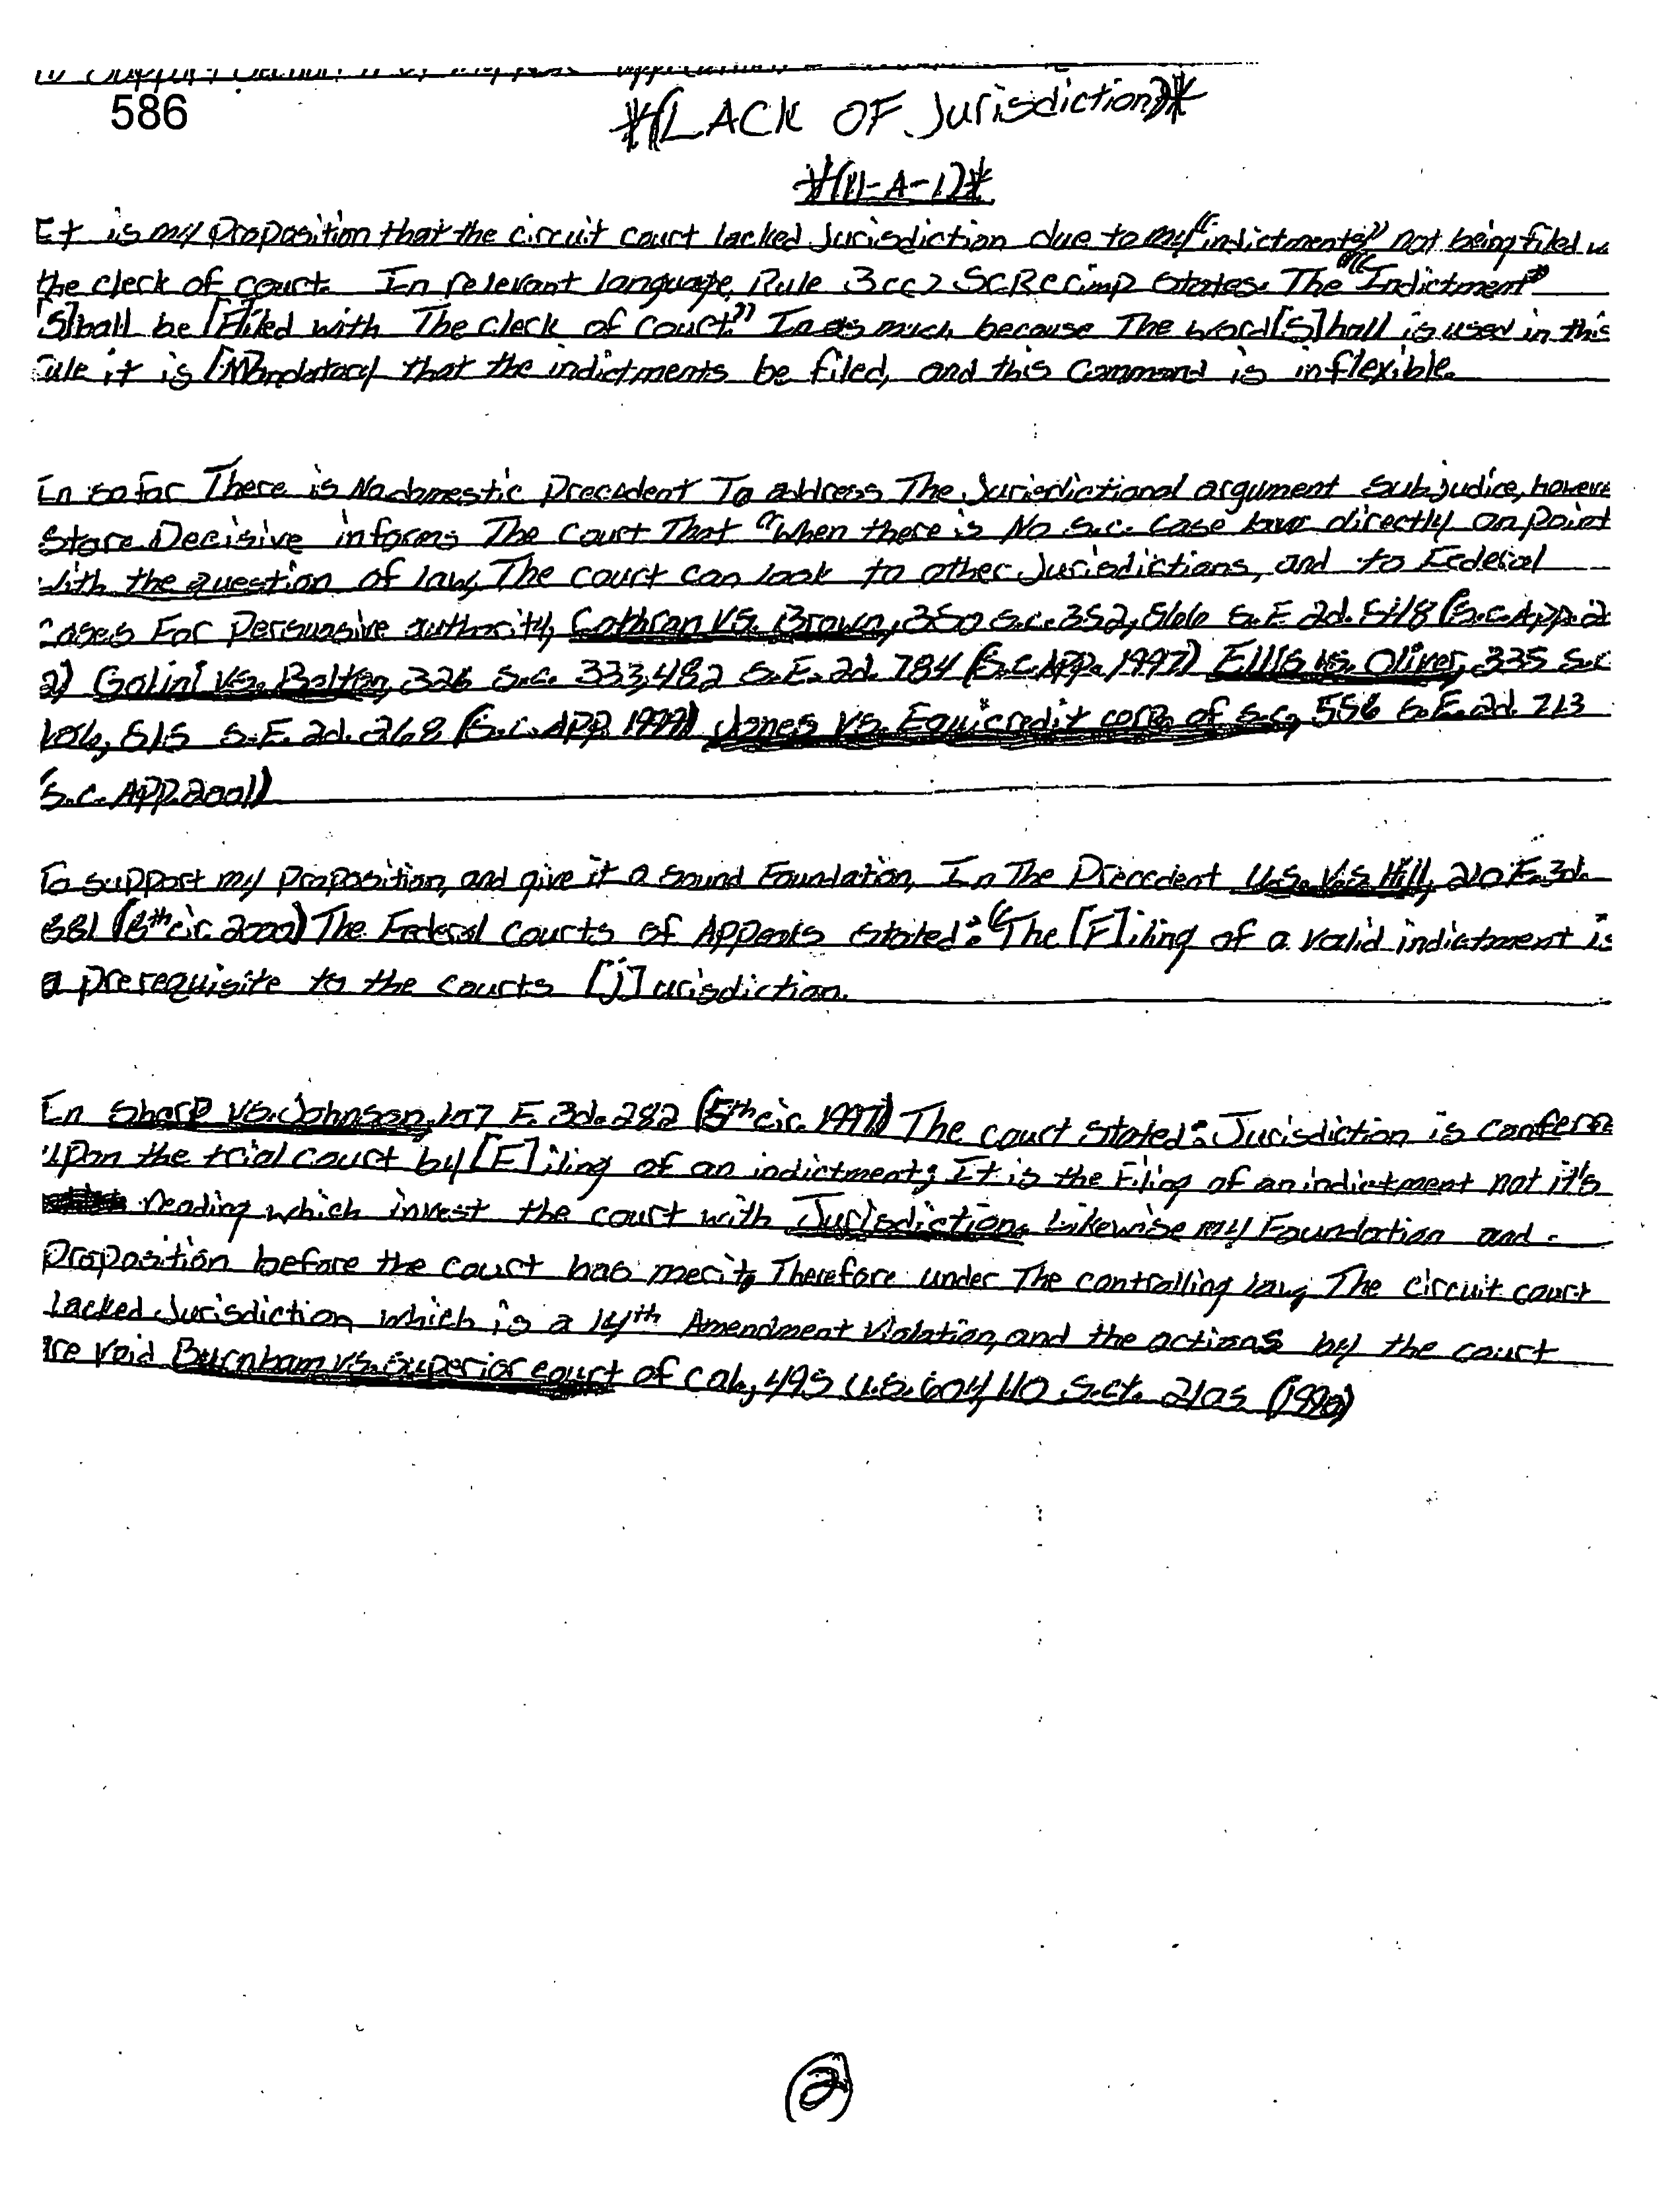 586
*(LACK OF Jurisdiction)*
*(11-A-1)*
It is my proposition that the circuit court lacked Jurisdiction due to my "indictments" not being filed w
the clerk of court. In relevant language, Rule 3(c) SCRCrimp states: The "Indictment"
[S]hall be [F]iled with The clerk of court." In as much because The word [S]hall is used in this
rule it is [M]andatory that the indictments be filed, and this Command is inflexible.
In so far There is No domestic precedent To address The Jurisdictional argument sub judice, howeve
Stare Decisive informs The court That "When there is No s.c. case law directly on point
with the question of law, The court can look to other Jurisdictions, and to Federal
cases For persuasive authority, Cothran VS. Brown, 350 s.c. 352, 566 S.E. 2d. 548 (S.C. App. 2
2) Golini VS. Bolton, 326 s.c. 333, 482 S.E. 2d. 784 (S.C. App. 1997) Ellis vs. Oliver, 335 s.c
106, 515 S.E. 2d. 268 (S.C. App. 1999) Jones VS. Equicredit corp. of s.c, 556 S.E. 2d. 713
S.C. App. 2001)
To support my proposition, and give it a sound Foundation, In The Precedent U.S. V.S Hill, 210 F.3d.
881 (8th cir. 2000) The Federal courts of Appeals stated: "The [F]iling of a valid indictment is
a prerequisite to the courts [j]urisdiction.
In Sharp VS. Johnson, 107 F. 3d. 282 (5th cir. 1997) The court stated: Jurisdiction is conferre
upon the trial court by [F]iling of an indictment; It is the Filing of an indictment not it's
reading which invest the court with Jurisdiction. Likewise my Foundation and
proposition before the court has merit, Therefore under The controlling law, The circuit court
lacked Jurisdiction which is a 14th Amendment Violation, and the actions by the court
are void Burnham vs. Superior court of cal., 495 U.S. 604, 110 S.ct. 2105 (1990)
(2)